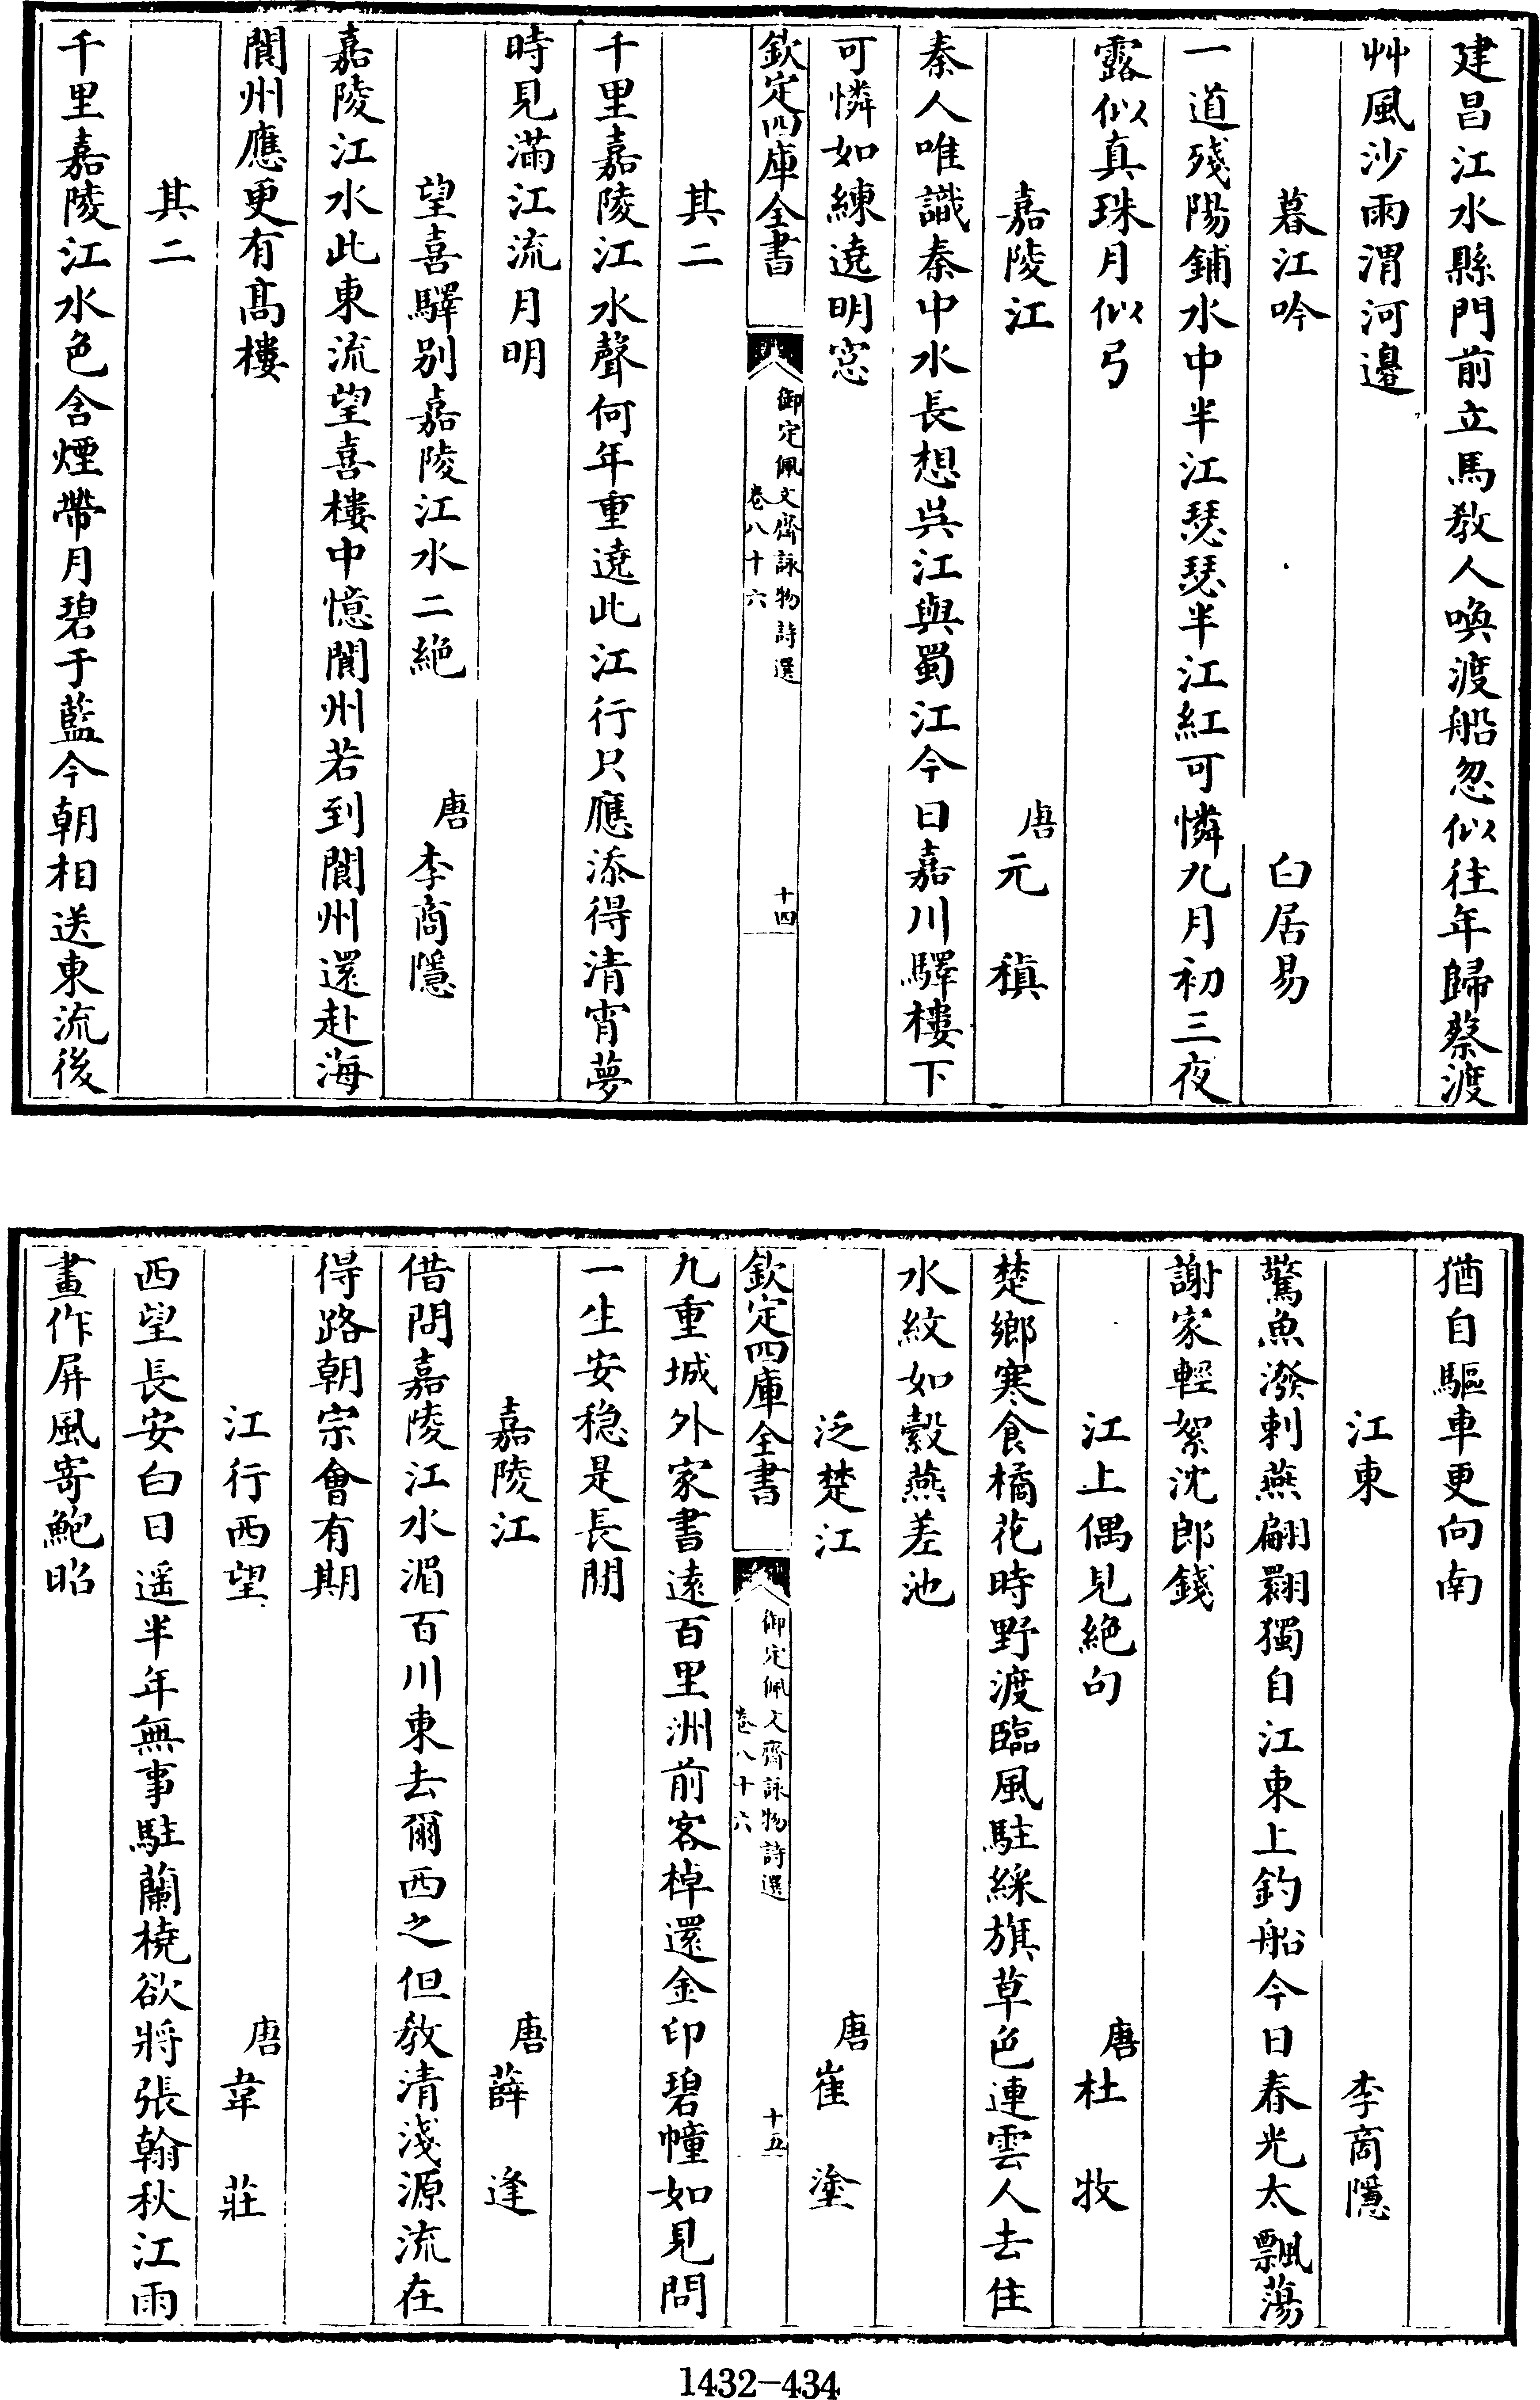 建昌江水縣門前立馬教人喚渡船忽似往年歸蔡渡
艸風沙雨渭河邊
暮江吟 白居易
一道殘陽鋪水中半江瑟瑟半江紅可憐九月初三夜
露似真珠月似弓
嘉陵江 唐 元稹
秦人唯識秦中水長想吳江與蜀江今日嘉川驛樓下
可憐如練遶明窓
欽定四庫全書 御定佩文齋詠物詩選 卷八十六 十四
其二
千里嘉陵江水聲何年重遶此江行只應添得清宵夢
時見滿江流月明
望喜驛别嘉陵江水二絶 唐 李商隱
嘉陵江水此東流望喜樓中憶閬州若到閬州還赴海
閬州應更有髙樓
其二
千里嘉陵江水色含煙帶月碧于藍今朝相送東流後
猶自驅車更向南
江東 李商隱
驚魚潑剌燕翩翾獨自江東上釣船今日春光太飄蕩
謝家輕絮沈郎錢
江上偶見絶句 唐 杜牧
楚鄉寒食橘花時野渡臨風駐綵旗草色連雲人去住
水紋如縠燕差池
泛楚江 唐 崔塗
欽定四庫全書 御定佩文齋詠物詩選 卷八十六 十五
九重城外家書遠百里洲前客棹還金印碧幢如見問
一生安穩是長閒
嘉陵江 唐 薛逢
借問嘉陵江水湄百川東去爾西之但教清淺源流在
得路朝宗會有期
江行西望 唐 韋莊
西望長安白日遥半年無事駐蘭橈欲將張翰秋江雨
畫作屏風寄鮑昭
1432-434